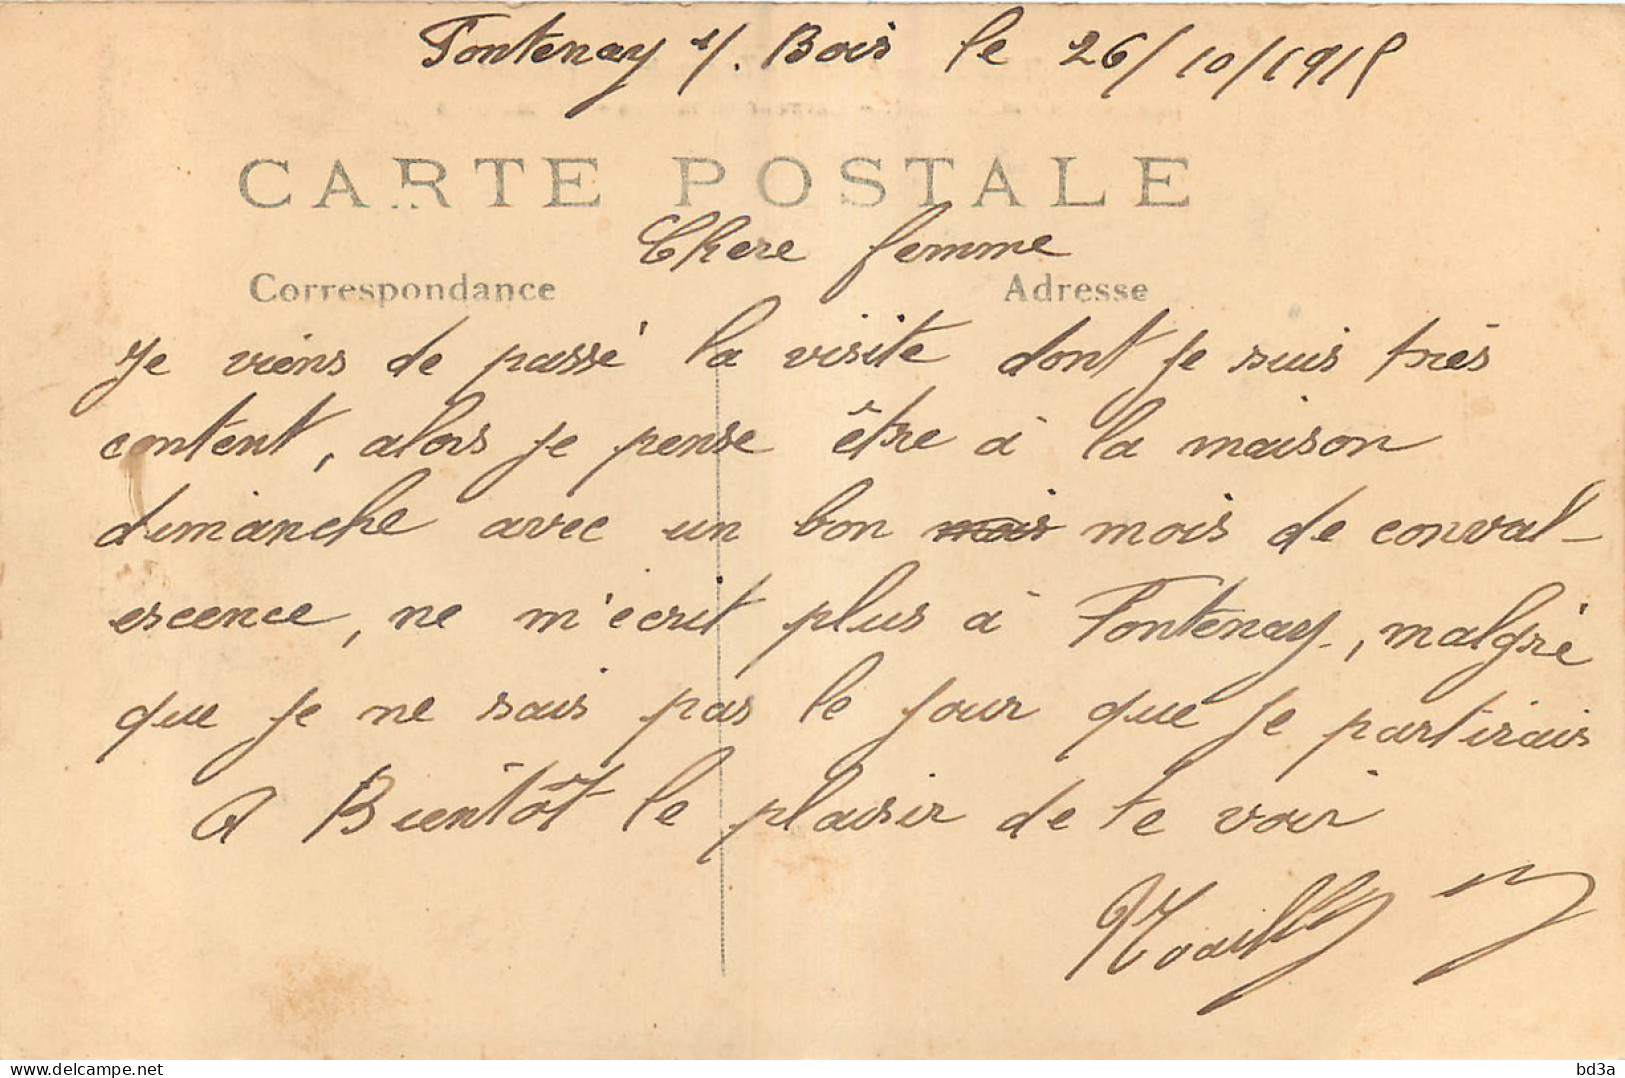 Fontenay s/. Bois le 26/10/1915
CARTE POSTALE
Chere femme
Correspondance Adresse
Je viens de passé la visite dont je suis très
content, alors je pense être à la maison
dimanche avec un bon mois mois de conval-
escence, ne m'écrit plus à Fontenay, malgré
que je ne sais pas le jour que je partirais
A Bientôt le plaisir de te voir
delcampe.net
bd3a